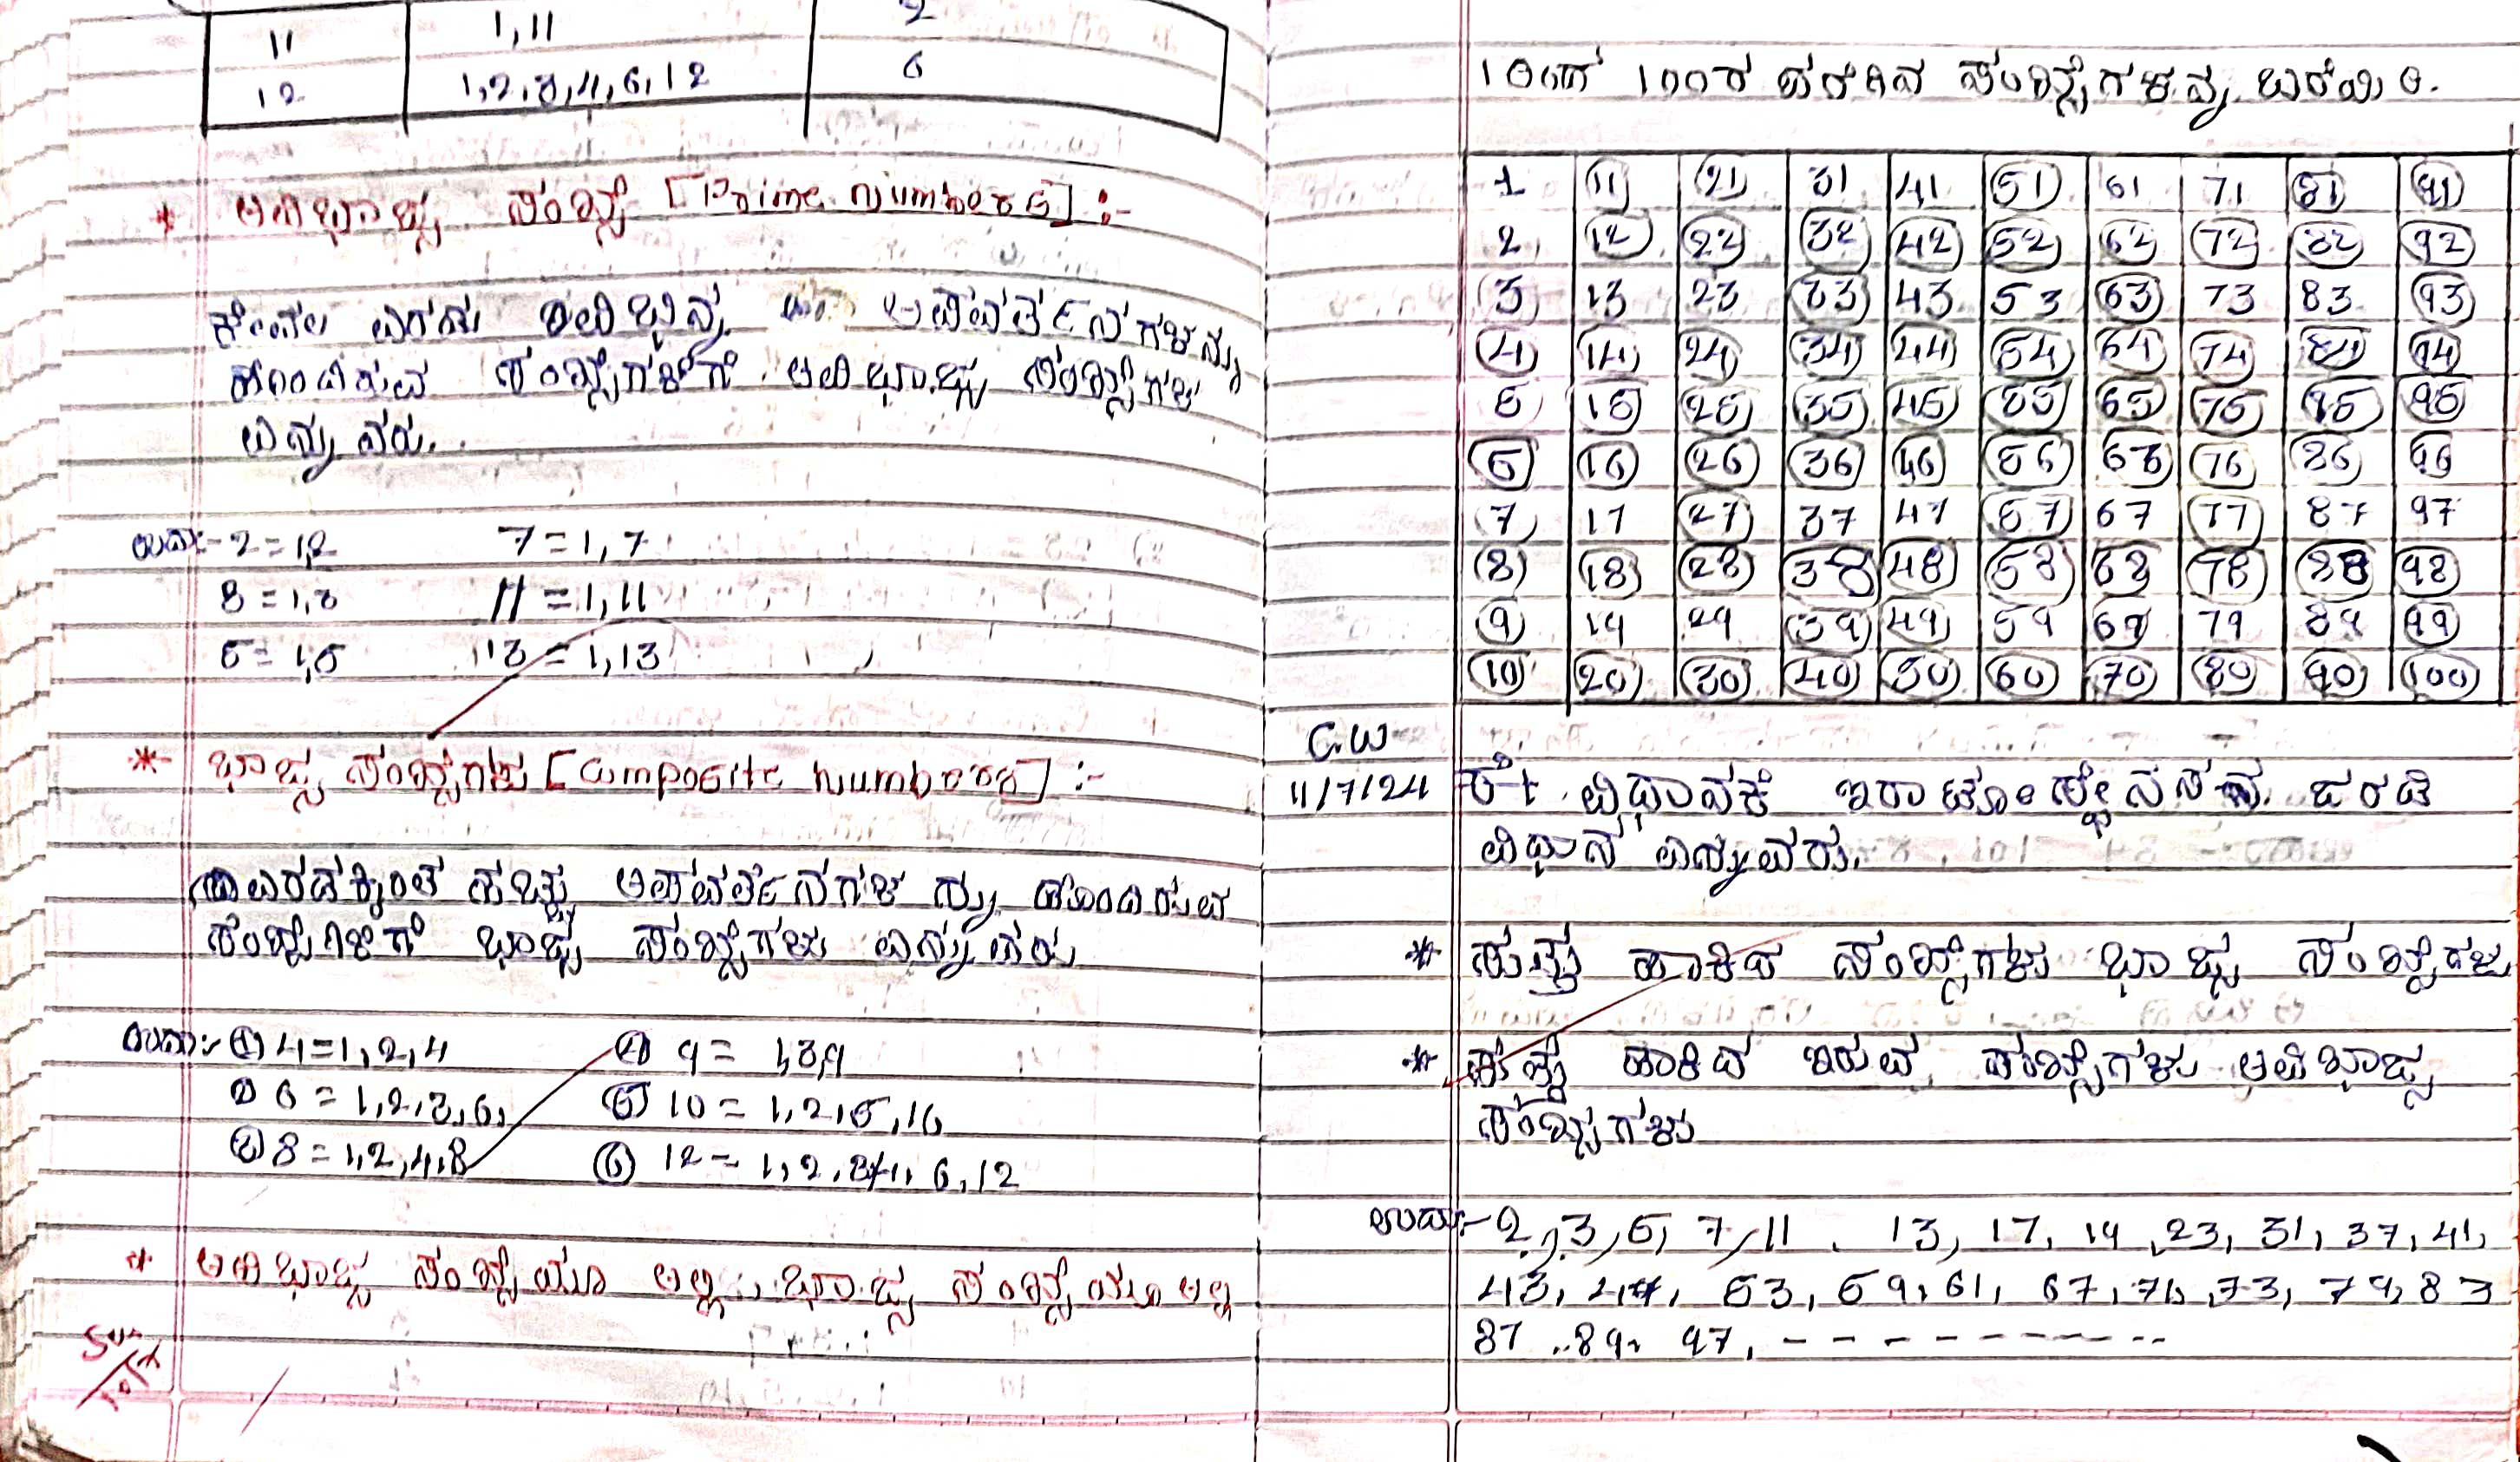 11 1, 11 2
12 1, 2, 3, 4, 6, 12 6
* ಅವಿಭಾಜ್ಯ ಸಂಖ್ಯೆ [Prime Numbers] :-
ಎರಡು ಅಪವರ್ತನಗಳನ್ನು
ಹೊಂದಿರುವ ಸಂಖ್ಯೆಗಳಿಗೆ ಅವಿಭಾಜ್ಯ ಸಂಖ್ಯೆಗಳು
ಎನ್ನುವರು.
ಉದಾ:- 2 = 1,2 7 = 1, 7
3 = 1,3 11 = 1, 11
5 = 1,5 13 = 1, 13
* ಭಾಜ್ಯ ಸಂಖ್ಯೆಗಳು [Composite Numbers] :-
ಎರಡಕ್ಕಿಂತ ಹೆಚ್ಚು ಅಪವರ್ತನಗಳನ್ನು ಹೊಂದಿರುವ
ಸಂಖ್ಯೆಗಳಿಗೆ ಭಾಜ್ಯ ಸಂಖ್ಯೆಗಳು ಎನ್ನುವರು
ಉದಾ:- ① 4 = 1, 2, 4 ④ 9 = 1,3,9
② 6 = 1, 2, 3, 6, ⑤ 10 = 1, 2, 5, 10
③ 8 = 1, 2, 4, 8 ⑥ 12 = 1, 2, 3, 4, 6, 12
* ಅವಿಭಾಜ್ಯ ಸಂಖ್ಯೆಯೂ ಅಲ್ಲ, ಭಾಜ್ಯ ಸಂಖ್ಯೆಯೂ ಅಲ್ಲ
1 ರಿಂದ 100ರ ವರೆಗಿನ ಸಂಖ್ಯೆಗಳನ್ನು ಬರೆಯಿರಿ.
1 11 21 31 41 51 61 71 81 91
2 12 22 32 42 52 62 72 82 92
3 13 23 33 43 53 63 73 83 93
4 14 24 34 44 54 64 74 84 94
5 15 25 35 45 55 65 75 85 95
6 16 26 36 46 56 66 76 86 96
7 17 27 37 47 57 67 77 87 97
8 18 28 38 48 58 68 78 88 98
9 19 29 39 49 59 69 79 89 99
10 20 30 40 50 60 70 80 90 100
C.W
11/7/24 ವಿಧಾನಕ್ಕೆ ಜರಡಿ
ವಿಧಾನ ಎನ್ನುವರು.
* ಸುತ್ತು ಹಾಕಿದ ಸಂಖ್ಯೆಗಳು ಭಾಜ್ಯ ಸಂಖ್ಯೆಗಳು
* ಸುತ್ತು ಹಾಕಿದ ಇರುವ ಸಂಖ್ಯೆಗಳು ಅವಿಭಾಜ್ಯ
ಸಂಖ್ಯೆಗಳು
ಉದಾ:- 2, 3, 5, 7, 11, 13, 17, 19, 23, 31, 37, 41,
43, 47, 53, 59, 61, 67, 71, 73, 79, 83
87, 89, 97, - - - - - - - -